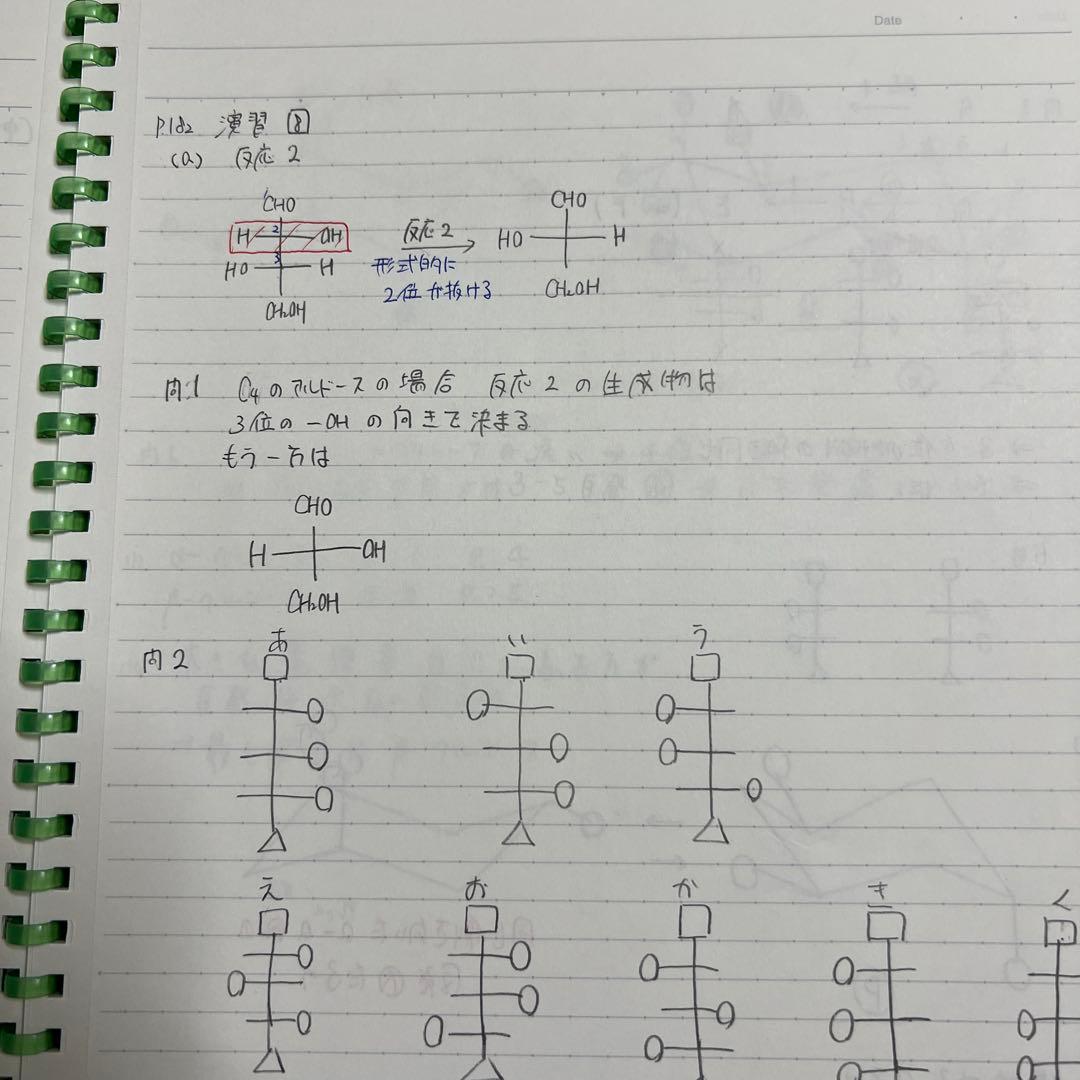 Date
P.182 演習 8
(a) 反応 2
CHO
H 2 OH
HO 3 H
CH2OH
反応 2
形式的に
2位が抜ける
CHO
HO H
CH2OH
問1 C4のアルドースの場合 反応2の生成物は
3位の-OHの向きで決まる
もう一方は
CHO
H OH
CH2OH
問2
あ い う
え お か き く